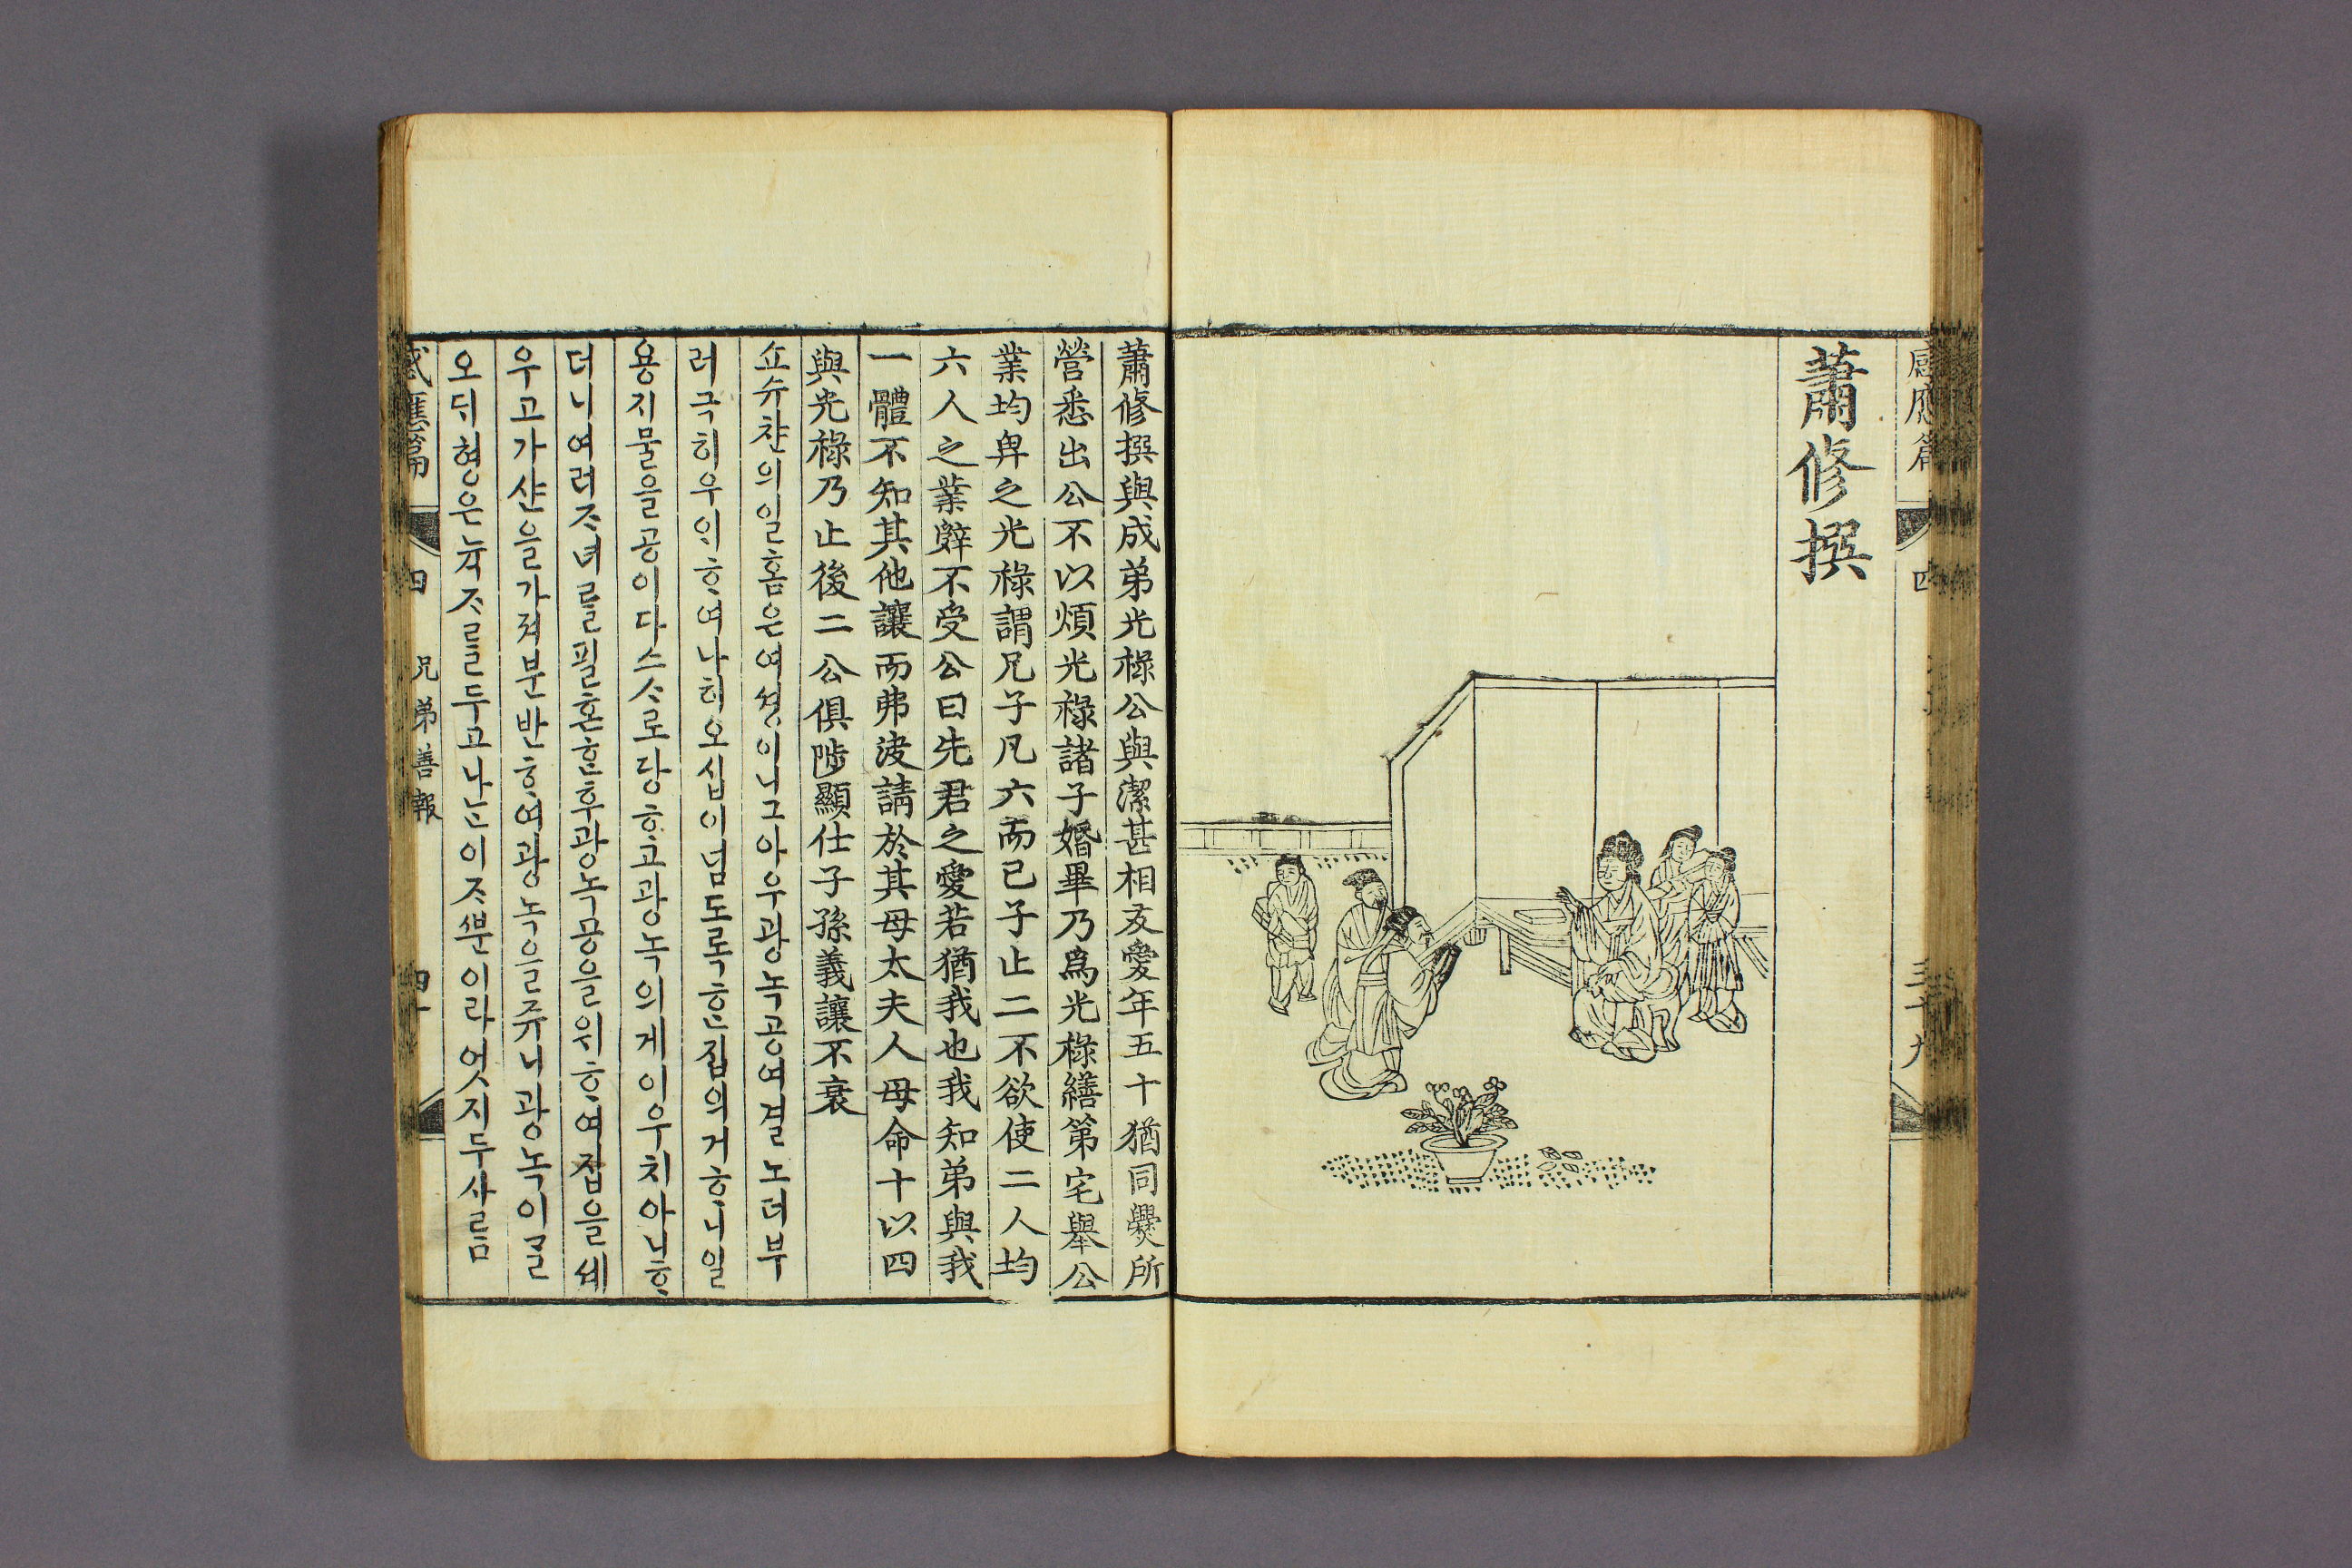 蕭修撰
蕭修撰與成弟光祿公與潔甚相友愛年五十猶同爨所
營悉出公不以煩光祿諸子婚畢乃爲光祿繕第宅舉公
業均畀之光祿謂兄子凡六而已子止二不欲使二人均
六人之業辤不受公曰先君之愛若猶我也我知弟與我
一體不知其他讓而弗决請於其母太夫人母命十以四
與光祿乃止後二公俱陟顯仕子孫義讓不衰
쇼슈찬의일홈은여셩이니그아우광녹공여결노더부
러극히우ᄋᆡᄒᆞ여나히오십이넘도록ᄒᆞᆫ집의거ᄒᆞ니일
용지물을공이다스ᄉᆞ로당ᄒᆞ고광녹의게이우치아니ᄒᆞ
더니여러ᄌᆞ녀를필혼ᄒᆞᆫ후광녹공을위ᄒᆞ여집을셰
우고가산을가져분반ᄒᆞ여광녹을쥬니광녹이ᄀᆞᆯ
오ᄃᆡ형은뉵ᄌᆞ를두고나ᄂᆞᆫ이ᄌᆞᄲᅮᆫ이라엇지두사ᄅᆞᆷ
感應篇 四 兄弟善報